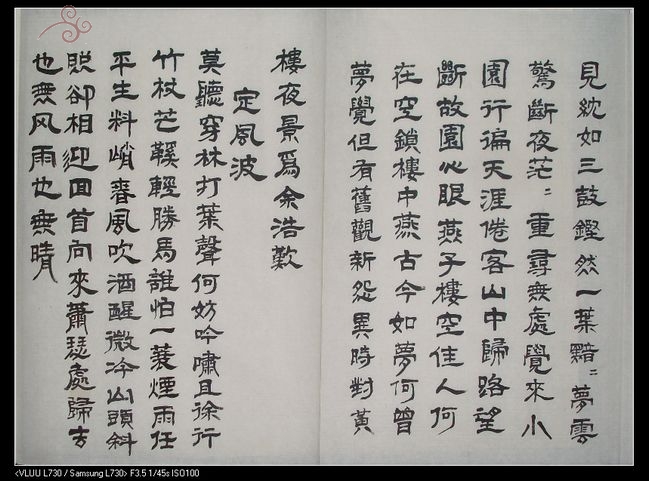 見紞如三鼓鏗然一葉黯﹕夢雲
驚斷夜茫﹕重尋無處覺來小
園行遍天涯倦客山中歸路望
斷故園心眼燕子樓空佳人何
在空鎖樓中燕古今如夢何曾
夢覺但有舊觀新怨異時對黃
樓夜景爲余浩歎
定風波
莫聽穿林打葉聲何妨吟嘯且徐行
竹杖芒鞵輕勝馬誰怕一蓑煙雨任
平生料峭春風吹酒醒微冷山頭斜
照卻相迎回首向來蕭瑟處歸去
也無风雨也無晴
<VLUU L730 / Samsung L730> F3.5 1/45s ISO100